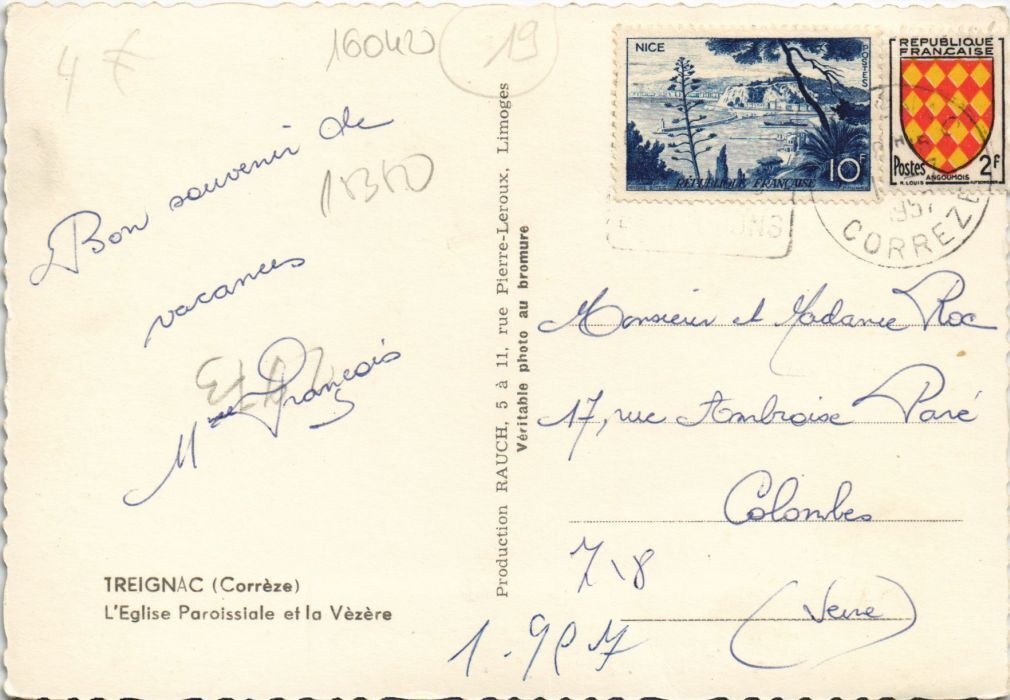 4 €
160420
19
Bon souvenir de
18380
vacances
Mme François
TREIGNAC (Corrèze)
L'Eglise Paroissiale et la Vèzère
Production RAUCH, 5 à 11, rue Pierre-Leroux, Limoges
Véritable photo au bromure
NICE
POSTES
10F
RÉPUBLIQUE FRANÇAISE
REPUBLIQUE
FRANÇAISE
Postes
2F
ANGOUMOIS
R. LOUIS
1957
CORREZE
Monsieur et Madame Roc
17, rue Ambroise Paré
Colombes
(Seine)